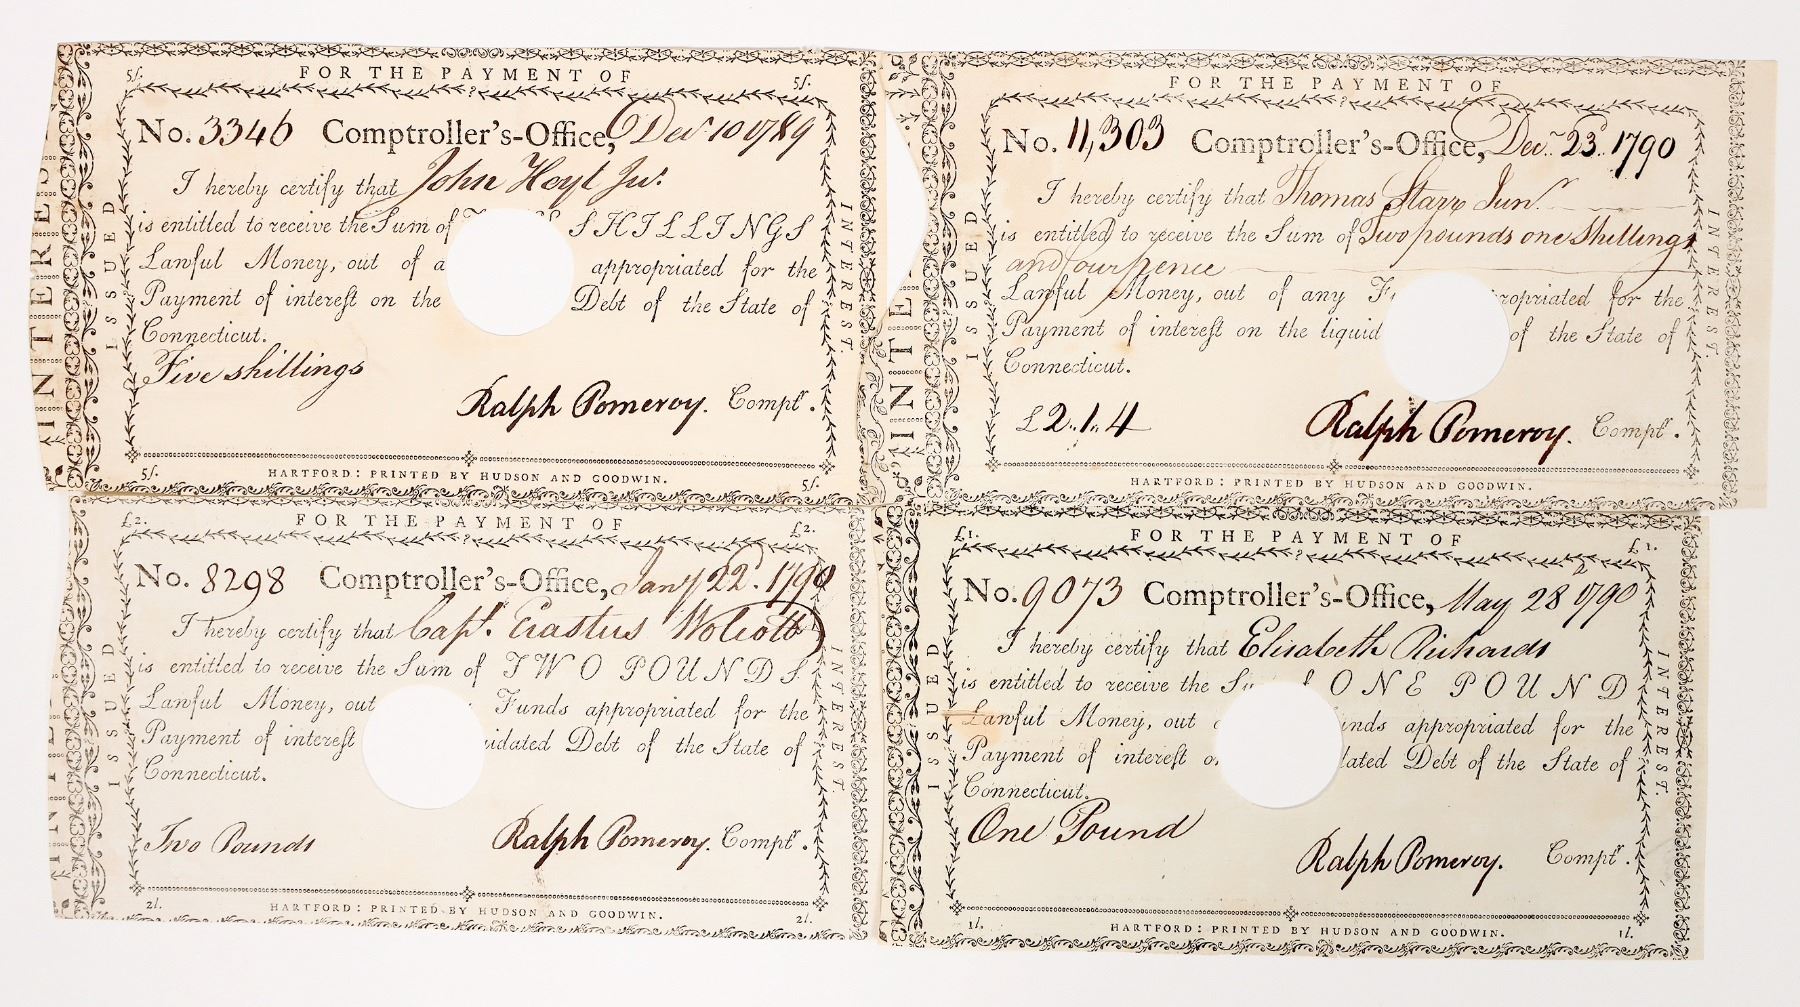 5ſ. FOR THE PAYMENT OF 5ſ.
No. 3346 Comptroller's-Office, Decr 10 1789
I hereby certify that John Hoyt Junr.
is entitled to receive the Sum of SHILLINGS
Lawful Money, out of a appropriated for the
Payment of intereſt on the Debt of the State of
Connecticut.
Five shillings
Ralph Pomeroy. Comptr.
HARTFORD: PRINTED BY HUDSON AND GOODWIN.
5ſ. 5ſ.
INTERES
ISSUED
INTEREST.
FOR THE PAYMENT OF
No. 11,303 Comptroller's-Office, Decr. 23d. 1790
I hereby certify that Thomas Starr Junr.
is entitled to receive the Sum of Two pounds one Shillings
and fourpence
Lawful Money, out of any F ropriated for the
Payment of intereſt on the liquid of the State of
Connecticut.
£2..1..4
Ralph Pomeroy. Comptr.
HARTFORD: PRINTED BY HUDSON AND GOODWIN.
INTE
ISSUED
INTEREST.
£2. FOR THE PAYMENT OF £2.
No. 8298 Comptroller's-Office, Jany 22d. 1790
I hereby certify that Capt. Erastus Wolcott
is entitled to receive the Sum of TWO POUNDS
Lawful Money, out Funds appropriated for the
Payment of intereſt uidated Debt of the State of
Connecticut.
Two Pounds
Ralph Pomeroy. Comptr.
2l. HARTFORD: PRINTED BY HUDSON AND GOODWIN. 2l.
ISSUED
INTEREST.
£1. FOR THE PAYMENT OF £1.
No. 9073 Comptroller's-Office, May 28 1790
I hereby certify that Elisabeth Richards
is entitled to receive the Su f ONE POUND
Lawful Money, out unds appropriated for the
Payment of intereſt o lated Debt of the State of
Connecticut.
One Pound
Ralph Pomeroy. Comptr.
1l. HARTFORD: PRINTED BY HUDSON AND GOODWIN. 1l.
ISSUED
INTEREST.